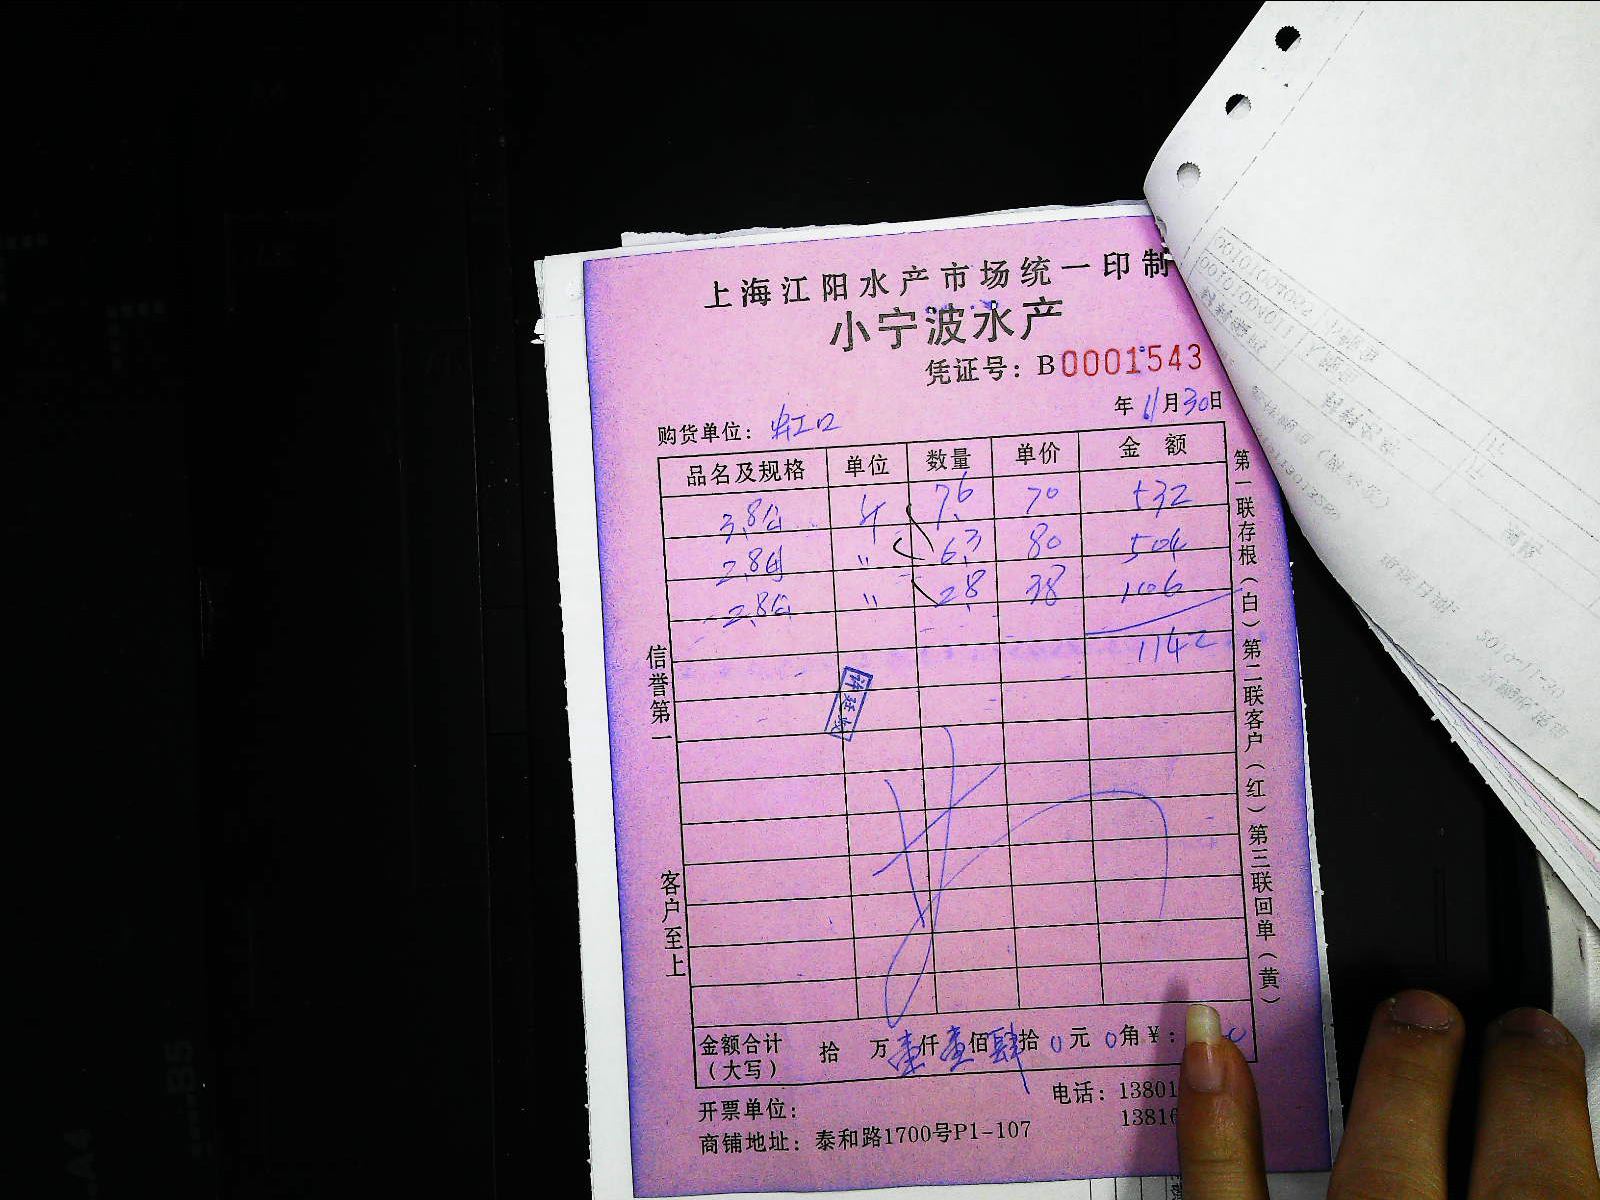 上海江阳水产市场统一印制
小宁波水产
凭证号：B0001543
年 11月30日
购货单位：虹口
品名及规格 单位 数量 单价 金额
3.8公 斤 7.6 70 532
2.8母 〃 6.3 80 504
2.8公 〃 2.8 38 106
1142
信誉第一
客户至上
第一联存根（白）第二联客户（红）第三联回单（黄）
金额合计（大写） 拾 万 壹仟 壹佰 肆拾 0元 0角 ¥：
开票单位：
电话：13801
13816
商铺地址：泰和路1700号P1-107